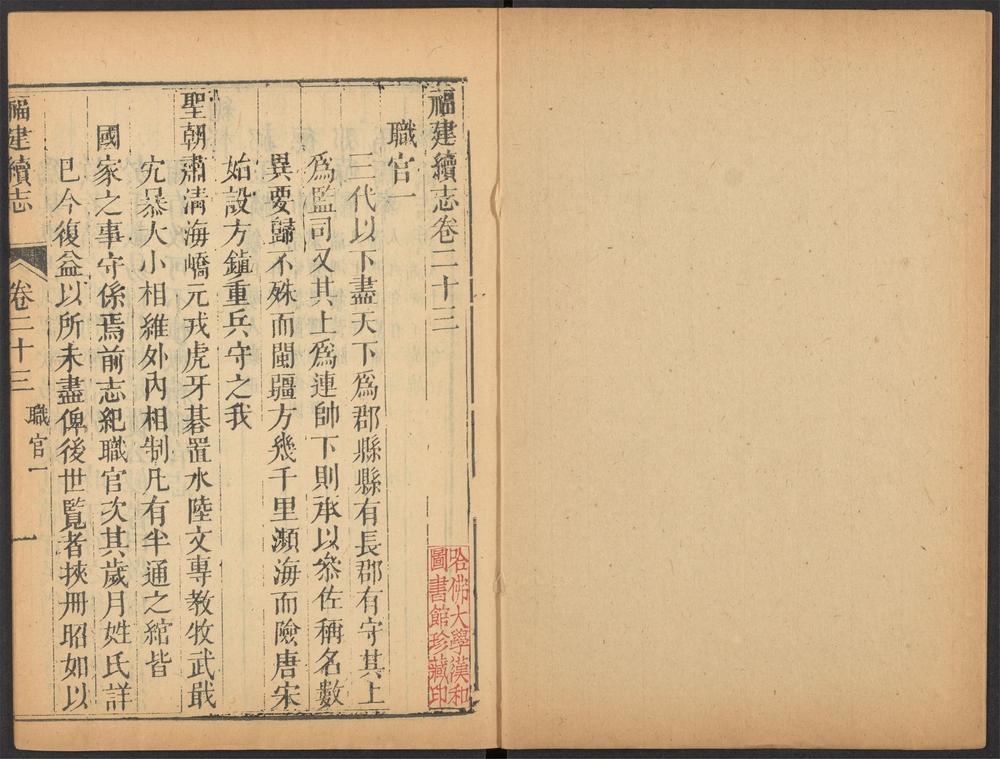 福建續志卷二十三
職官一
三代以下盡天下爲郡縣縣有長郡有守其上
爲監司又其上爲連帥下則承以叅佐稱名數
異要歸不殊而閩疆方幾千里瀕海而險唐宋
始設方鎮重兵守之我
聖朝肅清海嶠元戎虎牙碁置水陸文專教牧武戢
宄暴大小相維外內相制凡有半通之綰皆
國家之事守係焉前志紀職官次其歲月姓氏詳
已今復益以所未盡俾後世覽者挾冊昭如以
福建續志
卷二十三
職官一
一
哈佛大學漢和
圖書館珍藏印